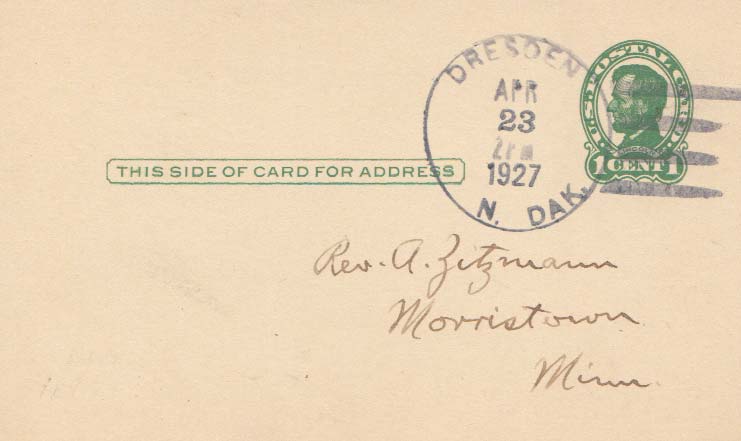 DRESDEN
APR
23
2 PM
1927
N. DAK.
U.S. POSTAL CARD
1 CENT 1
THIS SIDE OF CARD FOR ADDRESS
Rev. A. Zitzmann
Morristown
Minn.